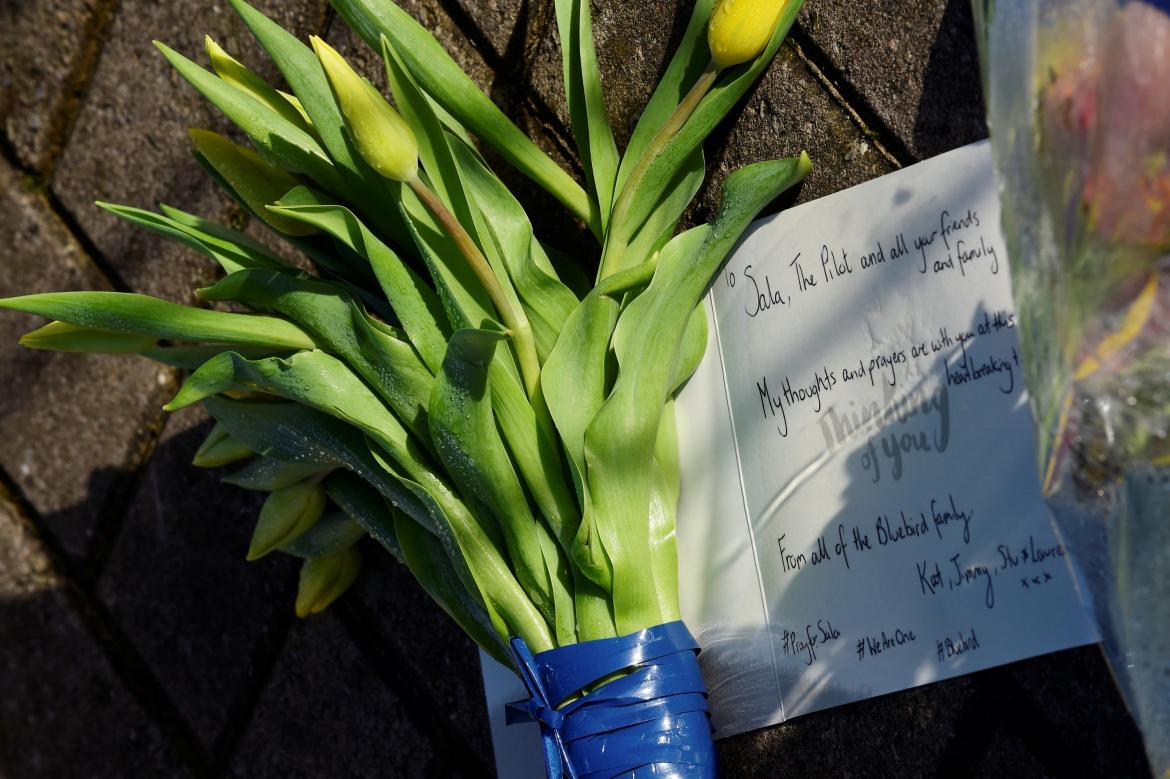 To Sala, The Pilot and all your friends
and family
My thoughts and prayers are with you at this
heartbreaking
Thinking
of you
From all of the Bluebird family
Kat, Jimmy, Stu x Laure
x x x
#PrayforSala #WeAreOne #Bluebird